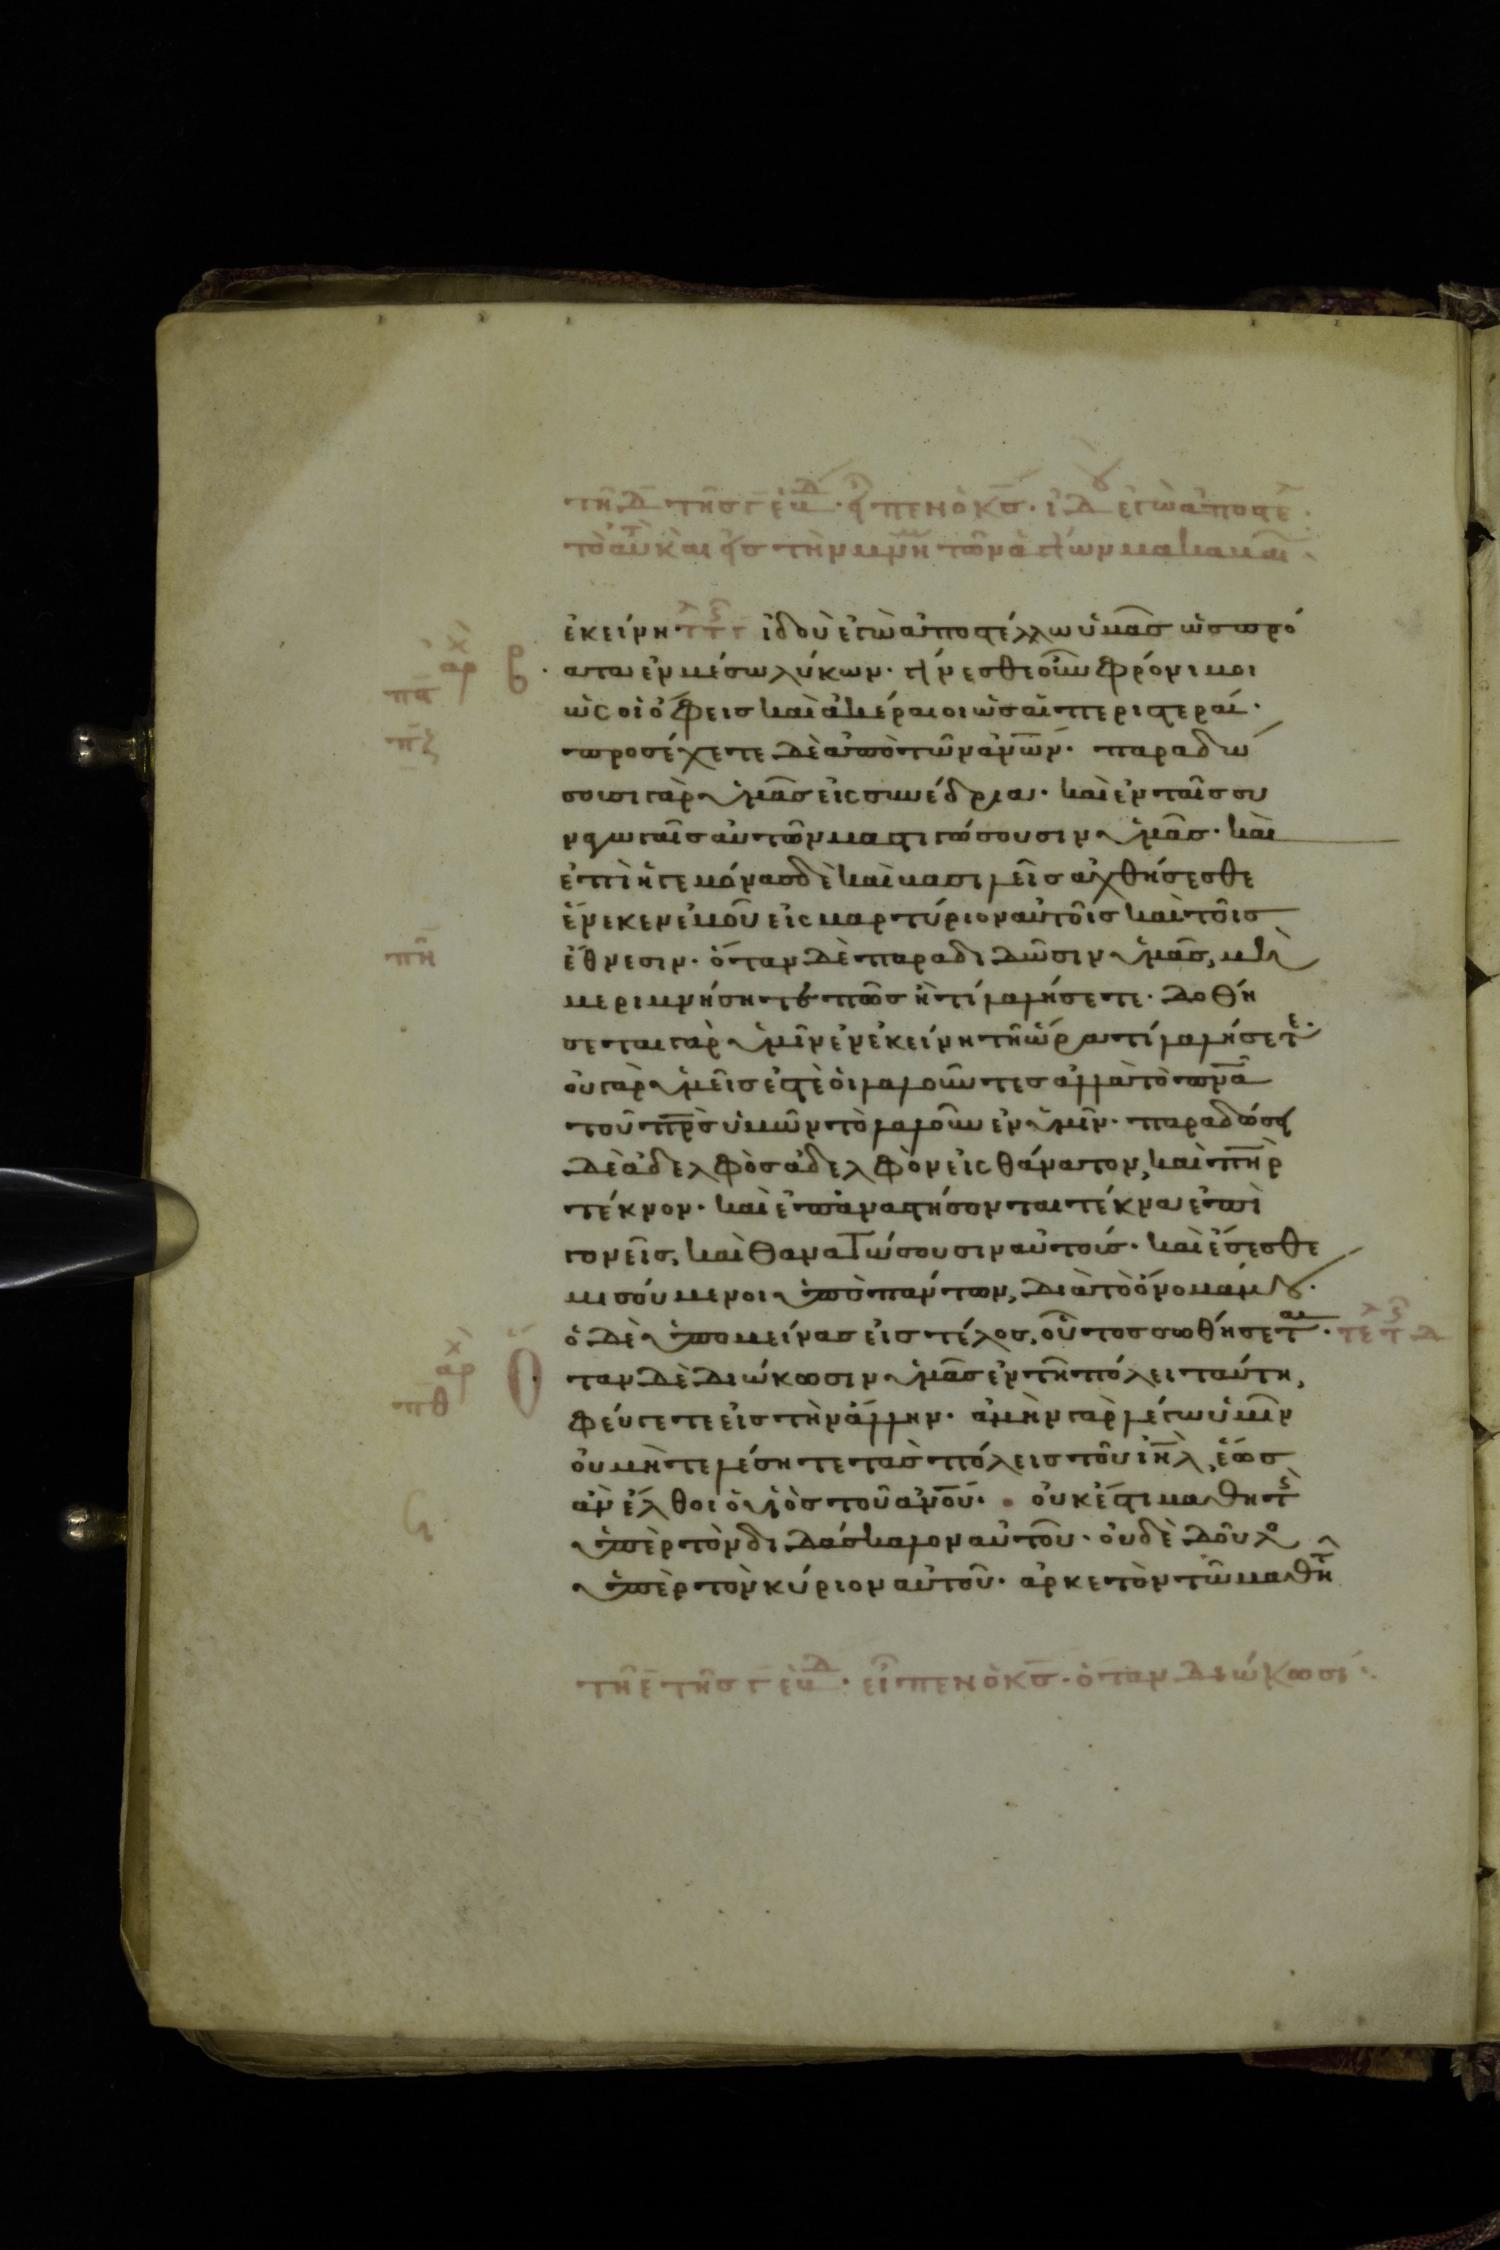 τῆ δ τῆς γ ἑβδ · εἶπεν ὁ κς · ἰδου ἐγὼ ἀποστε
τὸ αὐτ καὶ εἰς τὴν μνήμην τῶν ἁγίων
ἐκείνη · τελ τς γ ἰδοὺ ἐγὼ ἀποστέλλω ὑμᾶσ ὡσ πρό
αρχ β · βατα ἐν μέσω λύκων · γίνεσθε οὖν φρόνιμοι
πα ὡς οἱ ὄφεισ καὶ ἀκέραιοι ὡσ αἱ περιστεραί ·
πζ προσέχετε δὲ ἀπὸ τῶν ἀνῶν · παραδώ
σουσι γὰρ ὑμᾶσ εἰς συνέδρια · καὶ ἐν ταῖσ συ
ναγωγαῖσ αὐτῶν μαστιγώσουσιν ὑμᾶσ · καὶ
ἐπὶ ἡγεμόνασ δὲ καὶ βασιλεῖσ ἀχθήσεσθε
ἕνεκεν ἐμοῦ εἰς μαρτύριον αὐτοῖσ καὶ τοῖσ
πη ἔθνεσιν · ὅταν δὲ παραδιδῶσιν ὑμᾶσ, μὴ
μεριμνήσητε πῶσ ἢ τί λαλήσετε · δοθή
σεται γὰρ ὑμῖν ἐν ἐκείνη τῆ ὥρα τί λαλήσετε ·
οὐ γὰρ ὑμεῖσ ἐστὲ οἱ λαλοῦντεσ ἀλλὰ τὸ πνᾶ
τοῦ πρὸσ ὑμῶν τὸ λαλοῦν ἐν ὑμῖν · παραδώσει
δὲ ἀδελφὸσ ἀδελφὸν εἰς θάνατον, καὶ πηρ
τέκνον · καὶ ἐπαναστήσονται τέκνα ἐπὶ
γονεῖσ, καὶ θανατώσουσιν αὐτούσ · καὶ ἔσεσθε
μισούμενοι ὑπὸ πάντων, διὰ τὸ ὄνομά μου ·
ὁ δὲ ὑπομείνασ εἰσ τέλοσ, οὗτοσ σωθήσεται · τελ τς δ
αρχ Ὅταν δὲ διώκωσιν ὑμᾶσ ἐν τῆ πόλει ταύτη,
πθ φεύγετε εἰσ τὴν ἄλλην · ἀμὴν γὰρ λέγω ὑμῖν
οὐ μὴ τελέσητε τὰσ πόλεισ τοῦ ιηλ, ἕωσ
ϟ ἂν ἔλθοι ὁ υἱὸσ τοῦ ἀνοῦ · οὐκ ἔστι μαθητὴς
ὑπὲρ τὸν διδάσκαλον αὐτοῦ · οὐδὲ δοῦλος
ὑπὲρ τὸν κύριον αὐτοῦ · ἀρκετὸν τῶ μαθητῆ
τῆ ε τῆσ γ ἑβδ · εἶπεν ὁ κς · ὅταν διώκωσι ·